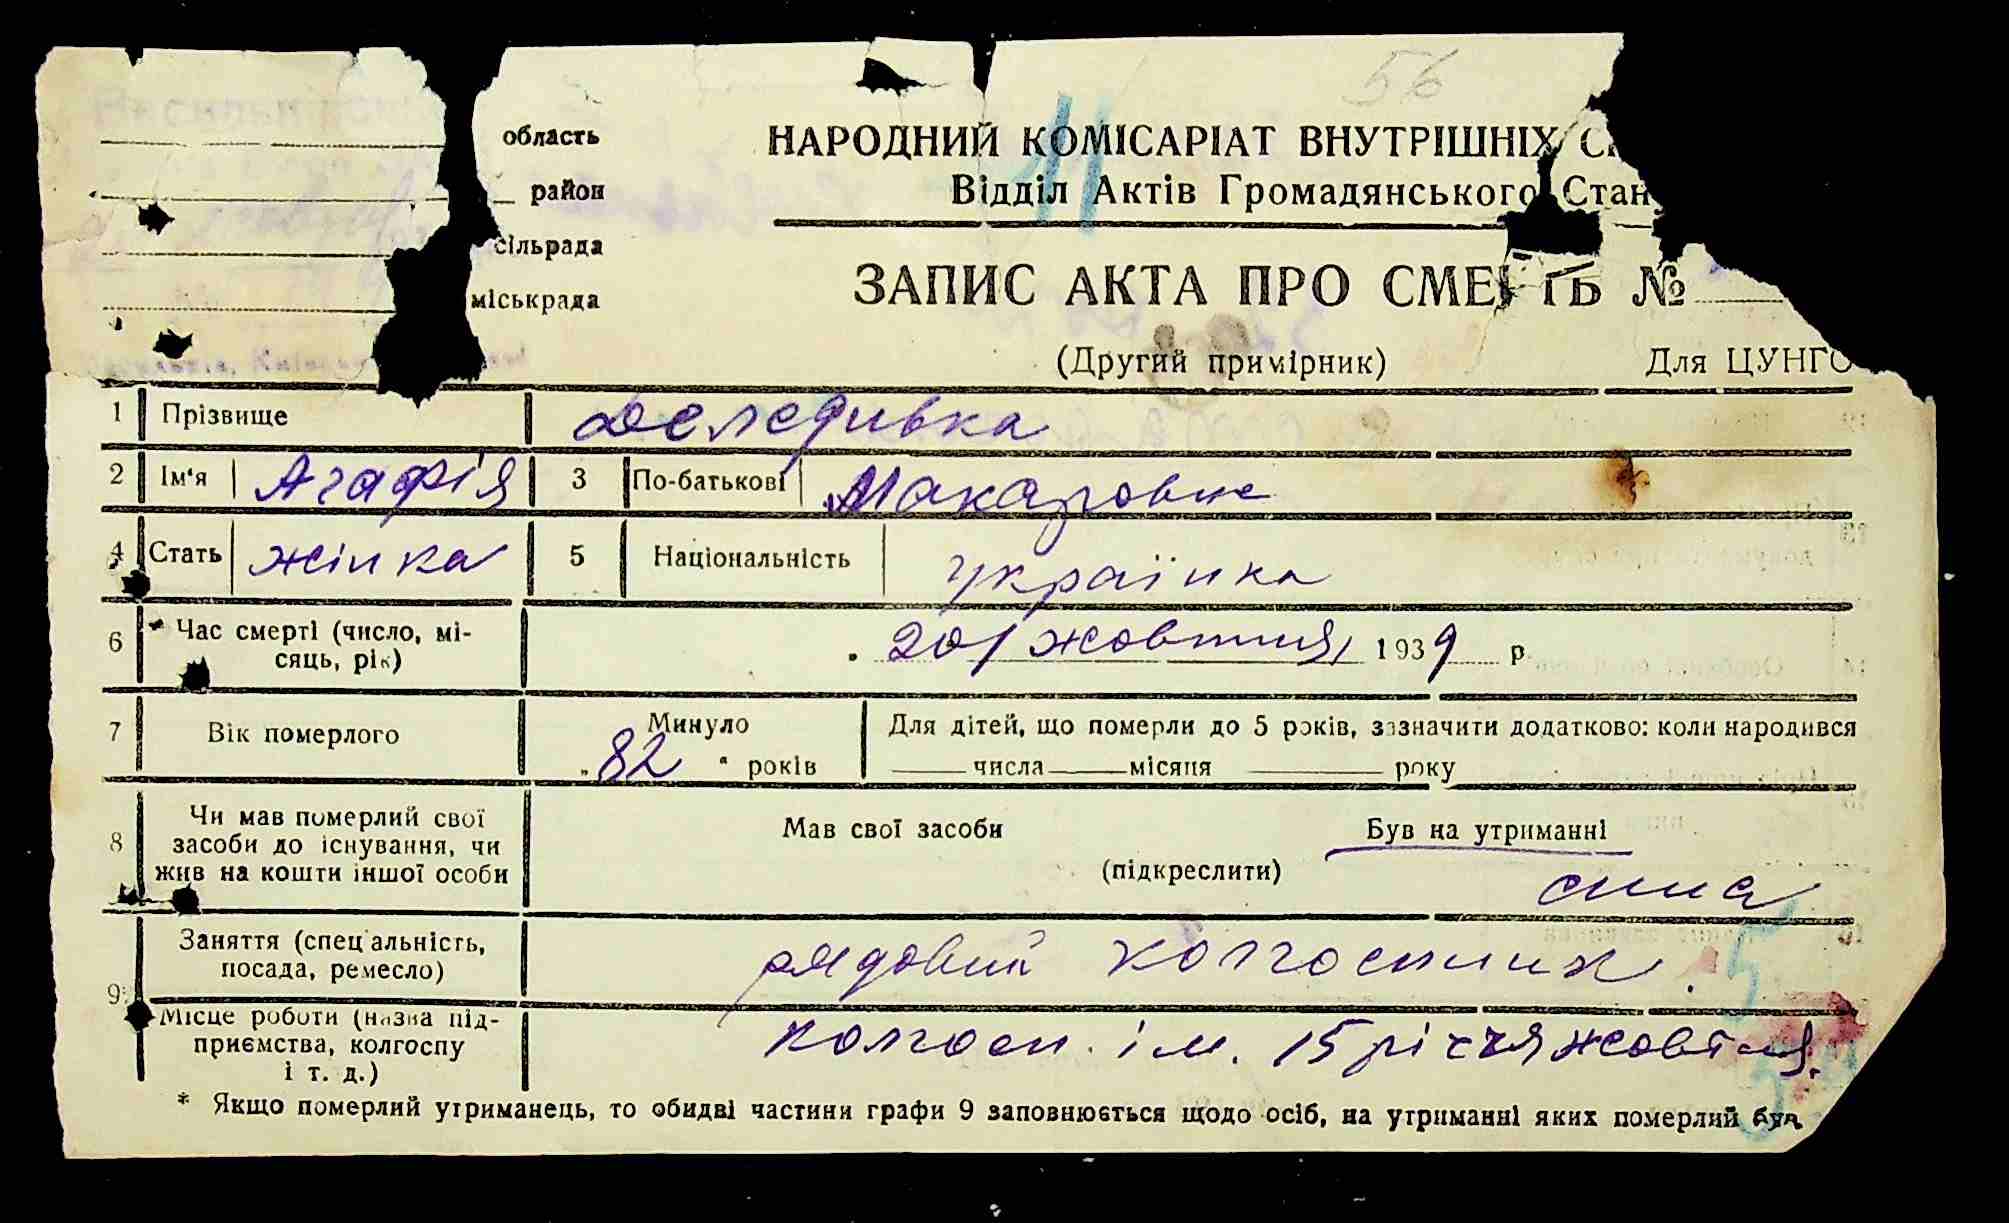 56
11
область
район
сільрада
міськрада
НАРОДНИЙ КОМІСАРІАТ ВНУТРІШНІХ
Відділ Актів Громадянського Стан
ЗАПИС АКТА ПРО СМЕРТЬ №
(Другий примірник) Для ЦУНГО
1 Прізвище
2 Ім'я Агафія 3 По-батькові Макаровне
4 Стать жінка 5 Національність українка
6 * Час смерті (число, мі-
сяць, рік) 20/ жовтня, 1939 р
7 Вік померлого Минуло „82“ років
Для дітей, що померли до 5 років, зазначити додатково: коли народився
числа місяця року
8 Чи мав померлий свої
засоби до існування, чи
жив на кошти іншої особи
Мав свої засоби Був на утриманні
(підкреслити)
сина
9 Заняття (спеціальність,
посада, ремесло) рядовий колгоспник.
Місце роботи (назва під-
приємства, колгоспу
і т. д.) колгосп. ім. 15 річчя жовтня.
* Якщо померлий утриманець, то обидві частини графи 9 заповнюється щодо осіб, на утриманні яких померлий був